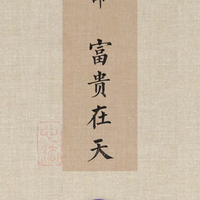 富贵在天